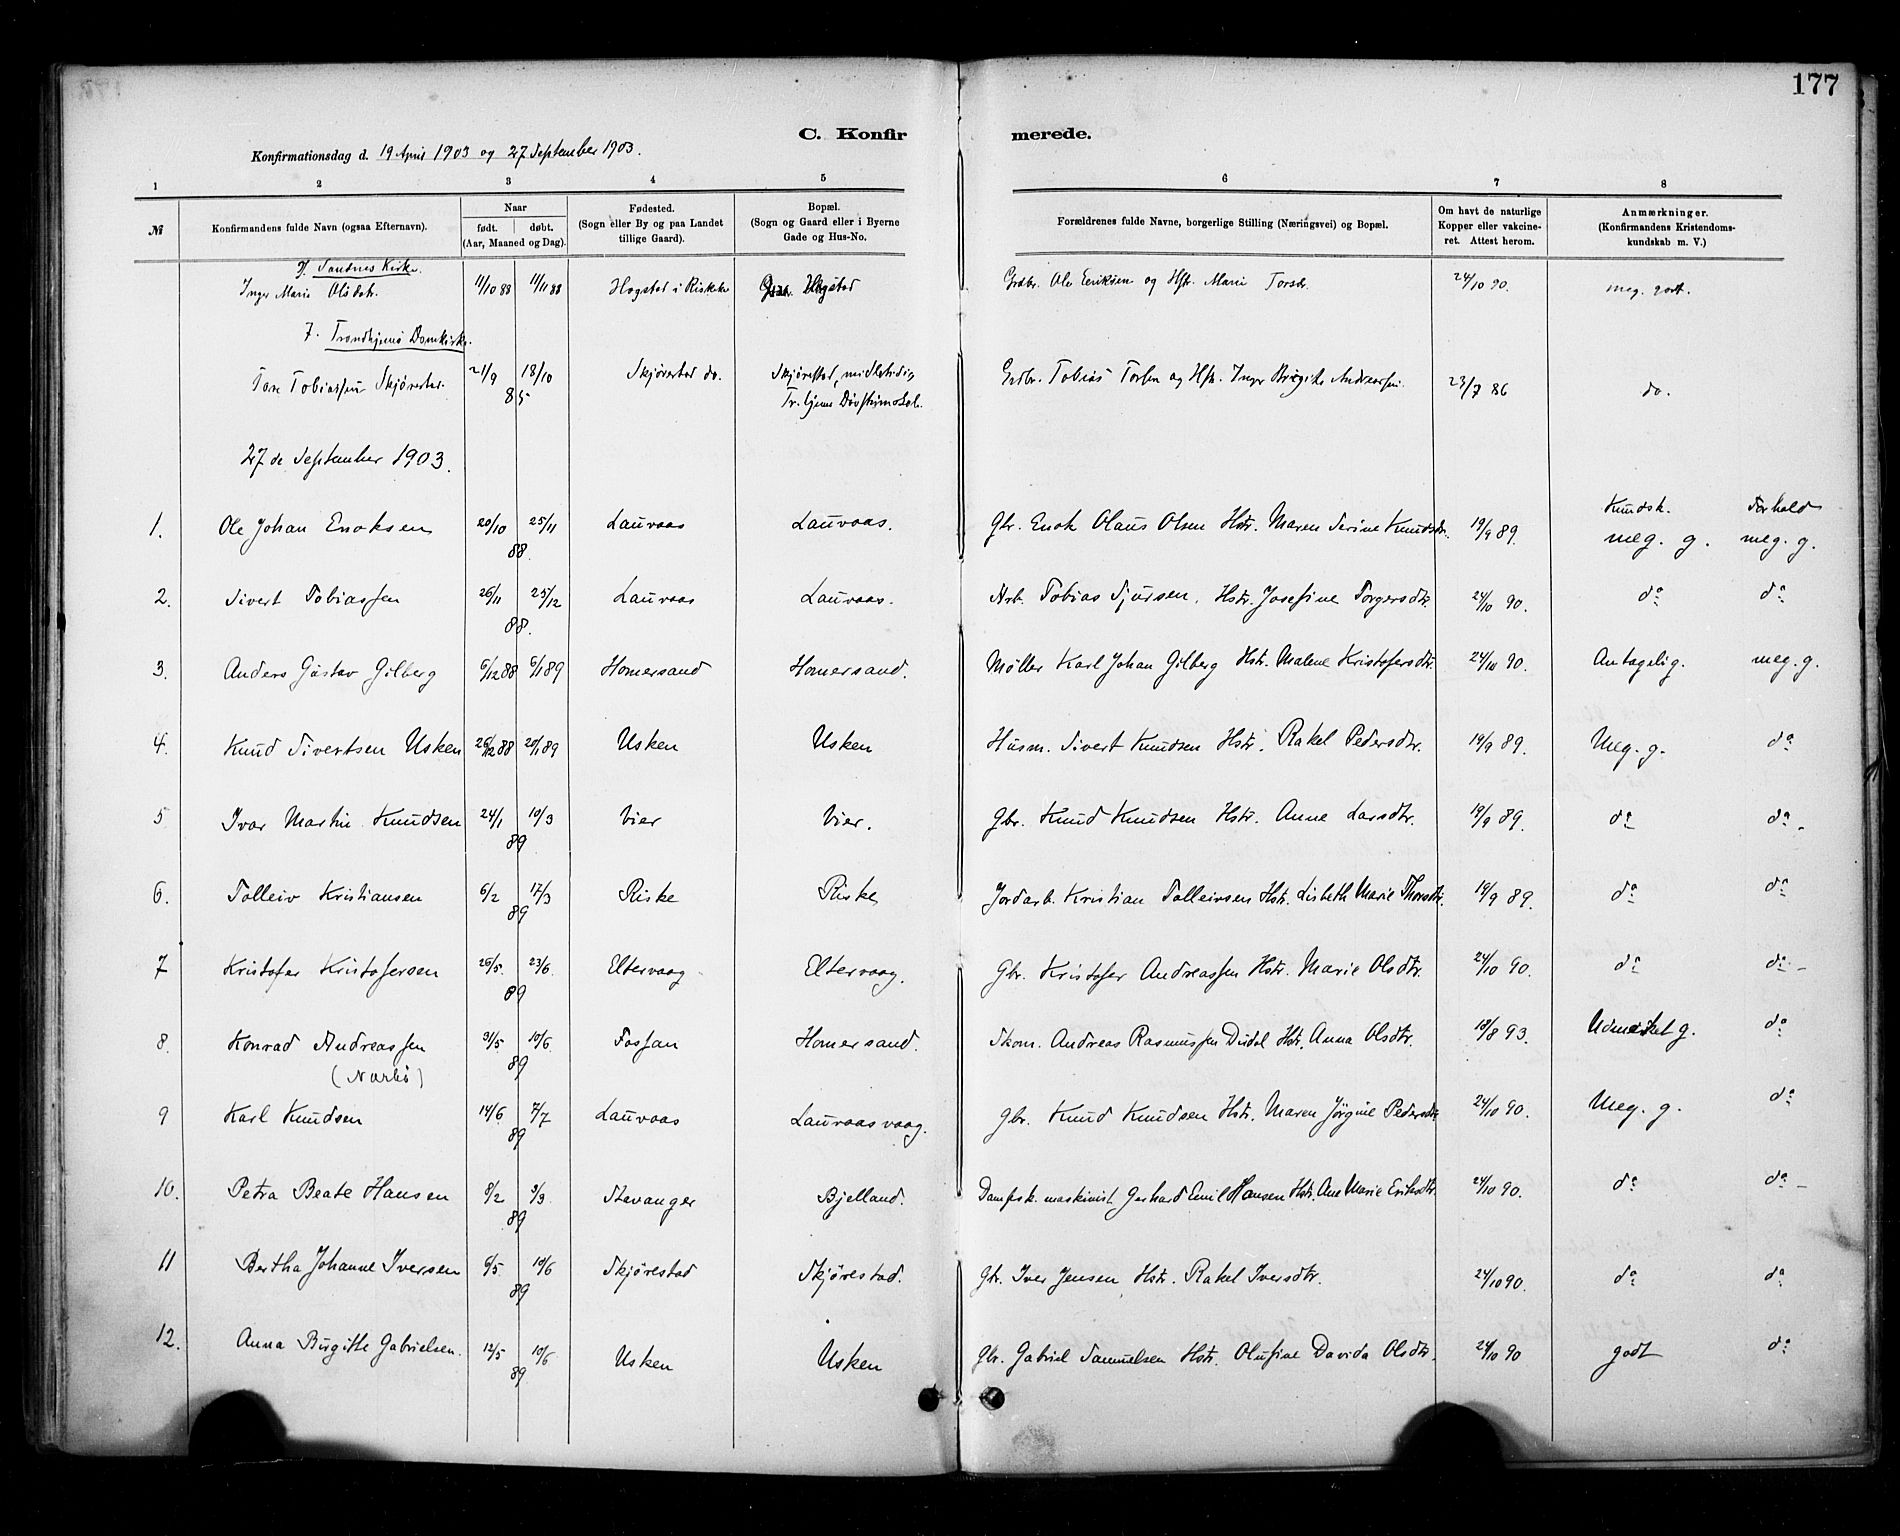 177
C. Konfir merede.
Konfirmationsdag d. 19 April 1903 og 27 September 1903.
1 2 3 4 5 6 7 8
№ Konfirmandens fulde Navn (ogsaa Efternavn). Naar født. døbt. (Aar, Maaned og Dag). Fødested. (Sogn eller By og paa Landet tillige Gaard). Bopæl. (Sogn og Gaard eller i Byerne Gade og Hus-No. Forældrenes fulde Navne, borgerlige Stilling (Næringsvei) og Bopæl. Om havt de naturlige Kopper eller vakcineret. Attest herom. Anmærkninger. (Konfirmandens Kristendomskundskab m. V.)
Sandnes Kirke.
Inger Marie Olsdtr. 11/10 88 11/11 88 Hogstad i Riskekv Hogstad Grdbr. Ole Eriksen og Hstr. Marie Torsdr. 24/10 90. meg. godt.
7. Trondhjems Domkirke.
Tore Tobiassen Skjørestad. 21/9 18/10 85 Skjørestad do. Skjørestad, midlertidig Grdbr. Tobias Torsen og Hstr. Inger Birgitte Andreassen. 23/7 86 do.
Tr. hjems Døvstumskol.
27de September 1903.
Kundsk. Forhold
1. Ole Johan Enoksen 20/10 25/11 88. Lauvaas Lauvaas. Gbr. Enok Olaus Olsen Hstr. Maren Serine Knudsdtr. 19/9 89. meg. g. meg. g.
2. Sivert Tobiassen 26/11 25/12 88. Lauvaas Lauvaas. Arb. Tobias Sjursen. Hstr. Josefine Torgersdtr. 24/10 90. do do
3. Anders Gustav Gilberg 6/12 88 6/1 89 Homersand Homersand. Møller Karl Johan Gilberg Hstr. Malene Kristofersdtr. 24/10 90. Antagelig. meg. g.
4. Knud Sivertsen Usken 26/12 88 20/1 89 Usken Usken Husm. Sivert Knudsen Hstr. Rakel Pedersdtr. 19/9 89. Meg. g. do
5 Ivar Martin Knudsen 24/1 10/3 89 Vier Vier. Gbr. Knud Knudsen Hstr. Anne Larsdtr. 19/9 89. do do
6. Tolleiv Kristiansen 6/2 17/3 89 Riske Riske Jordarb. Kristian Tolleivsen Hstr. Lisbeth Marie Thorsdtr. 19/9 89. do do
7 Kristofer Kristofersen 26/5. 23/6. 89 Eltervaag Eltervaag. Gbr. Kristofer Andreassen Hstr. Marie Olsdtr. 24/10 90. do do
8. Konrad Andreassen 31/5. 10/6. 89 Fossan Homersand. Skom. Andreas Rasmussen Dirdal Hstr. Anna Olsdtr. 18/8 93. Udmerket g. do
(Narbø)
9 Karl Knudsen 14/6 7/7 89 Lauvaas Lauvaasvaag. Gbr. Knud Knudsen Hstr. Maren Jørgine Pedersdtr 24/10 90. Meg. g. do
10. Petra Beate Hansen 8/2 3/3. 89 Stavanger Bjelland. Dampsk. maskinist Gerhard Emil Hansen Hstr. Ane Marie Eriksdtr. 24/10 90. do do
11 Bertha Johanne Iversen 6/5. 10/6 89 Skjørestad Skjørestad. Gbr. Iver Jensen Hstr. Rakel Iversdtr. 24/10 90. do do
12. Anna Birgitte Gabrielsen. 12/5 10/6 89. Usken Usken Gbr. Gabriel Samuelsen Hstr. Olufine Davida Olsdtr. 24/10 90 godt do